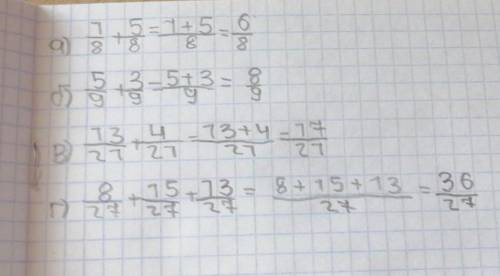 а) 1/8 + 5/8 = 1+5/8 = 6/8
б) 5/9 + 3/9 = 5+3/9 = 8/9
в) 13/21 + 4/21 = 13+4/21 = 17/21
г) 8/27 + 15/27 + 13/27 = 8+15+13/27 = 36/27